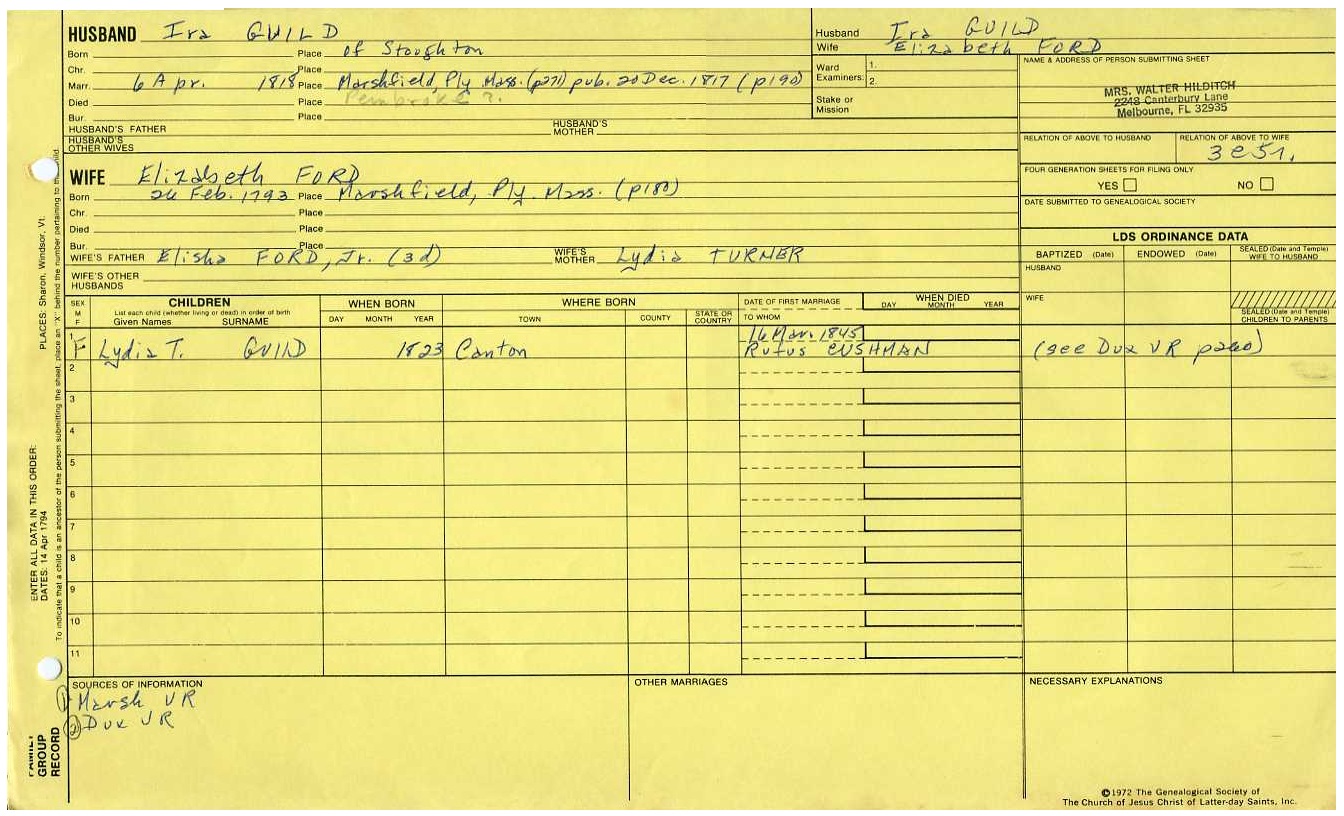 HUSBAND Ira GUILD
Born Place of Stoughton
Chr. Place
Marr. 6 Apr. 1818 Place Marshfield, Ply. Mass. (p271) pub. 20 Dec. 1817 (p190)
Died Place Pembroke ?.
Bur. Place
HUSBAND'S FATHER HUSBAND'S MOTHER
HUSBAND'S OTHER WIVES
WIFE Elizabeth FORD
Born 26 Feb. 1793 Place Marshfield, Ply. Mass. (p180)
Chr. Place
Died Place
Bur. Place
WIFE'S FATHER Elisha FORD, Jr. (3d) WIFE'S MOTHER Lydia TURNER
WIFE'S OTHER HUSBANDS
Husband Ira GUILD
Wife Elizabeth FORD
Ward 1.
Examiners: 2.
Stake or Mission
NAME & ADDRESS OF PERSON SUBMITTING SHEET
MRS. WALTER HILDITCH
2248 Canterbury Lane
Melbourne, FL 32935
RELATION OF ABOVE TO HUSBAND RELATION OF ABOVE TO WIFE
FOUR GENERATION SHEETS FOR FILING ONLY
YES NO
DATE SUBMITTED TO GENEALOGICAL SOCIETY
LDS ORDINANCE DATA
BAPTIZED (Date) ENDOWED (Date) SEALED (Date and Temple) WIFE TO HUSBAND
HUSBAND
WIFE
SEALED (Date and Temple) CHILDREN TO PARENTS
SEX M F CHILDREN WHEN BORN WHERE BORN DATE OF FIRST MARRIAGE WHEN DIED
List each child (whether living or dead) in order of birth
Given Names SURNAME DAY MONTH YEAR TOWN COUNTY STATE OR COUNTRY TO WHOM DAY MONTH YEAR
1 16 Mar. 1845
F Lydia T. GUILD 1823 Canton Rufus CUSHMAN (see Dux VR p260)
2
3
4
5
6
7
8
9
10
11
SOURCES OF INFORMATION OTHER MARRIAGES NECESSARY EXPLANATIONS
1 Marsh VR
2 Dux VR
©1972 The Genealogical Society of
The Church of Jesus Christ of Latter-day Saints, Inc.
PLACES: Sharon, Windsor, Vt.
ENTER ALL DATA IN THIS ORDER:
DATES: 14 Apr 1794
To indicate that a child is an ancestor of the person submitting the sheet, place an "X" behind the number pertaining to that child.
FAMILY GROUP RECORD